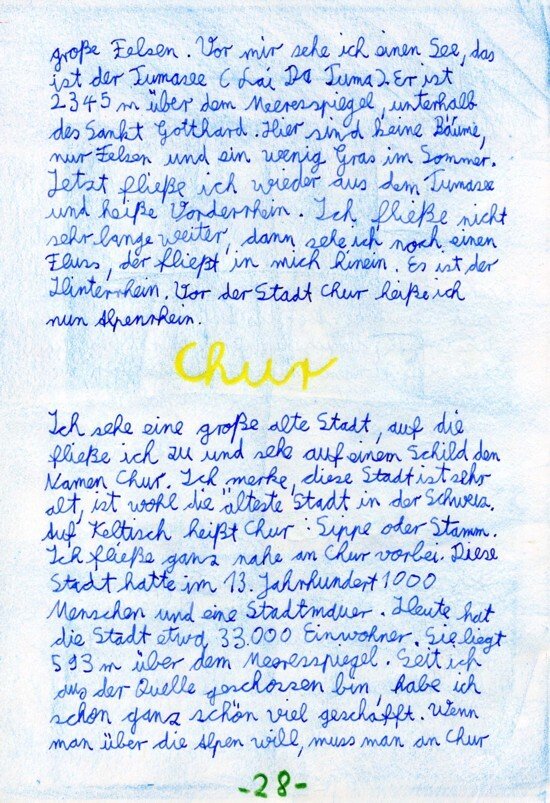 große Felsen. Vor mir sehe ich einen See, das
ist der Tumasee (Lai Da Tuma). Er ist
2345 m über dem Meeresspiegel, unterhalb
des Sankt Gotthard. Hier sind keine Bäume,
nur Felsen und ein wenig Gras im Sommer.
Jetzt fließe ich wieder aus dem Tumasee
und heiße Vorderrhein. Ich fließe nicht
sehr lange weiter, dann sehe ich noch einen
Fluss, der fließt in mich hinein. Es ist der
Hinterrhein. Vor der Stadt Chur heiße ich
nun Alpenrhein.
Chur
Ich sehe eine große alte Stadt, auf die
fließe ich zu und sehe auf einem Schild den
Namen Chur. Ich merke, diese Stadt ist sehr
alt, ist wohl die älteste Stadt in der Schweiz.
Auf Keltisch heißt Chur: Sippe oder Stamm.
Ich fließe ganz nahe an Chur vorbei. Diese
Stadt hatte im 13. Jahrhundert 1000
Menschen und eine Stadtmauer. Heute hat
die Stadt etwa 33.000 Einwohner. Sie liegt
593 m über dem Meeresspiegel. Seit ich
aus der Quelle geschossen bin, habe ich
schon ganz schön viel geschafft. Wenn
man über die Alpen will, muss man an Chur
-28-